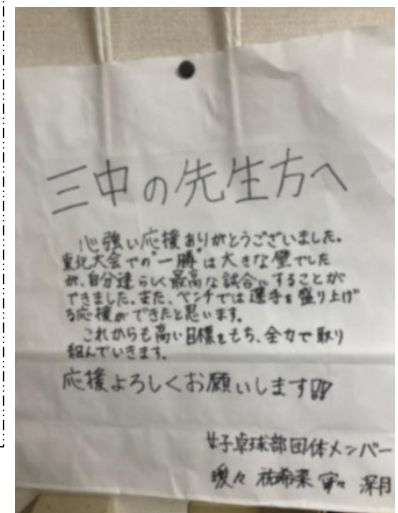 三中の先生方へ
心強い応援ありがとうございました。
東北大会での"一勝"は大きな壁でした
が、自分達らしく最高な試合にすることが
できました。また、ベンチでは選手を盛り上げ
る応援ができたと思います。
これからも高い目標をもち、全力で取り
組んでいきます。
応援よろしくお願いします!!
女子卓球部団体メンバー
祐希菜 深月